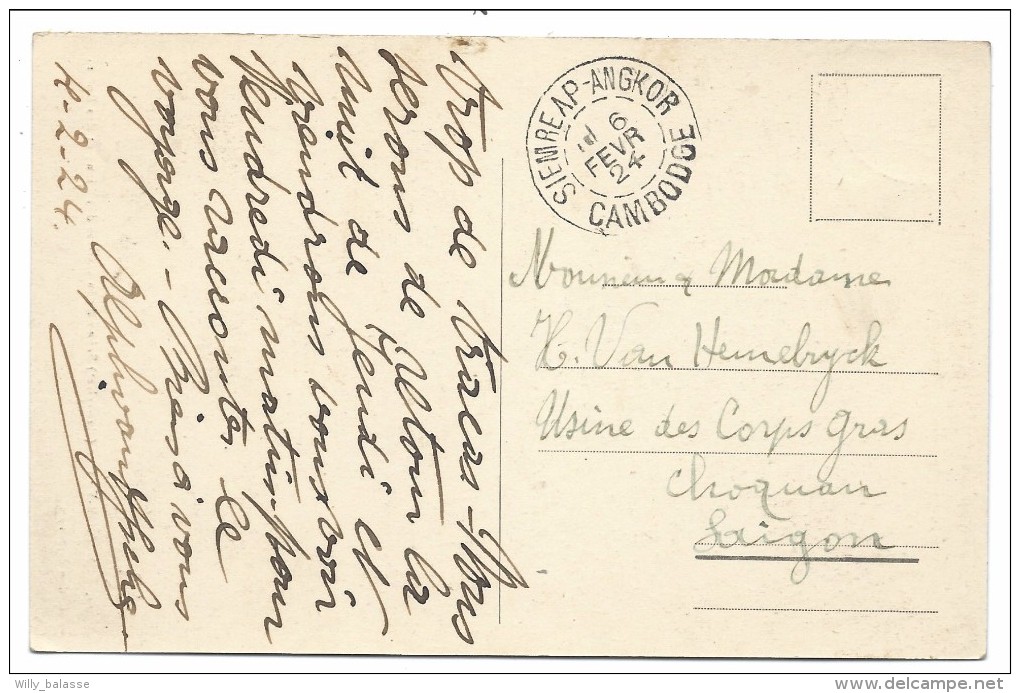 Trop de tracas - Nous
serons de retour la
nuit de jeudi et
viendrons vous voir
vendredi matin pour
vous raconter le
voyage. - Bien à vous
4-2-24.
SIEMREAP-ANGKOR
6
FEVR
24
CAMBODGE
Monsieur & Madame
H. Van Hemebryck
Usine des Corps gras
Choquan
Saigon
Willy_balasse
delcampe.net